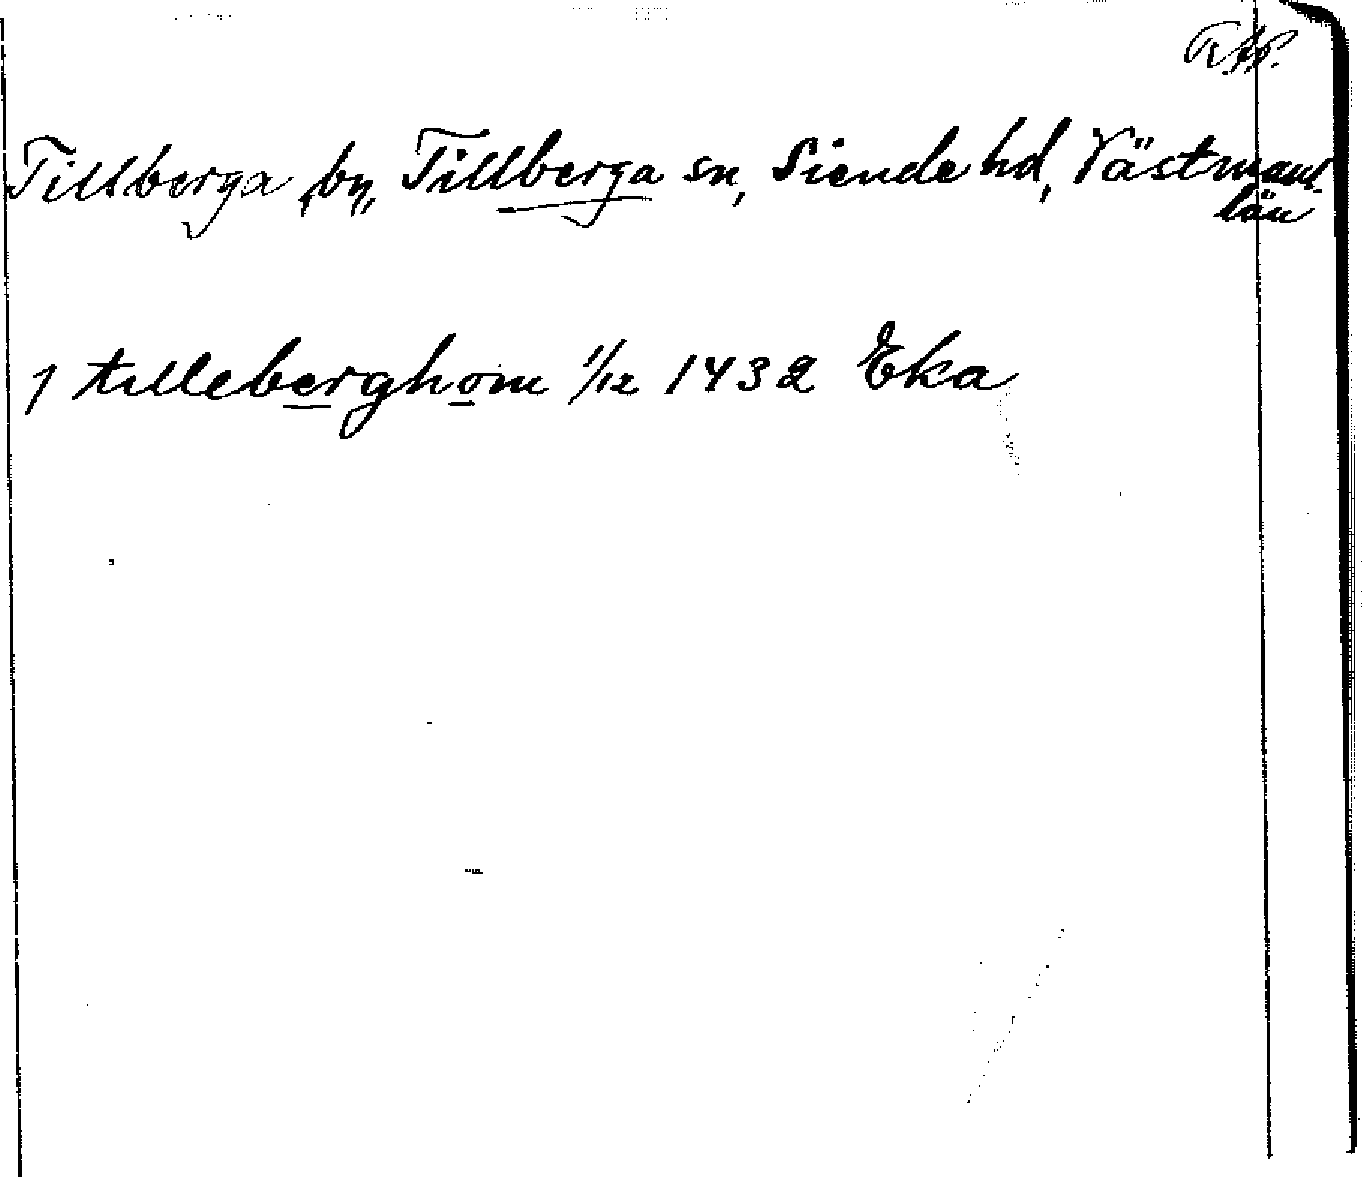 Tillberga by, Tillberga sn, Siende hd, Västmanl.
län
1 tilleberghom 1/12 1432 Eka